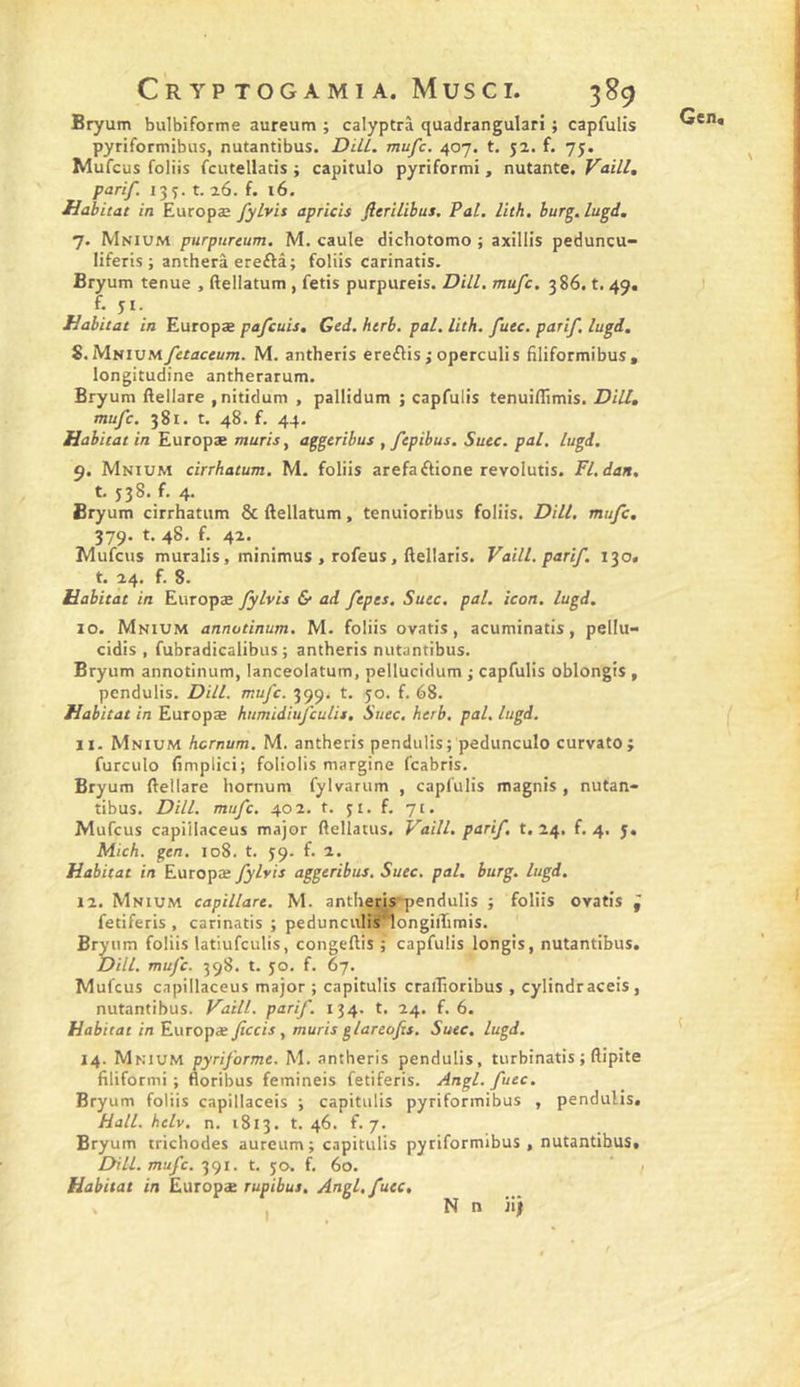 CRYPTOGAMIA. MUSCI. 389
Gen.
Bryum bulbiforme aureum ; calyptrâ quadrangulari ; capſulis
pyriformibus, nutantibus. Dill. muſc. 407. t. 52. f. 75.
Muſcus foliis ſcutellatis ; capitulo pyriformi, nutante. Vaill.
pariſ. 135. t. 26. f. 16.
Habitat in Europæ ſylvis apricis ſterilibus. Pal. lith. burg. lugd.
7. MNIUM purpureum. M. caule dichotomo ; axillis peduncu-
liferis ; antherâ erectâ; foliis carinatis.
Bryum tenue , ſtellatum , ſetis purpureis. Dill. muſc. 386. t. 49.
f. 51.
Habitat in Europæ paſcuis. Ged. herb. pal. lith. ſuec. pariſ. lugd.
8. MNIUM ſetaceum. M. antheris erectis ; operculis filiformibus,
longitudine antherarum.
Bryum ſtellare , nitidum , pallidum ; capſulis tenuiſſimis. Dill.
muſc. 381. t. 48. f. 44.
Habitat in Europæ muris, aggeribus , ſepibus. Suec. pal. lugd.
9. MNIUM cirrhatum. M. foliis arefactione revolutis. Fl. dan.
t. 538. f. 4.
Bryum cirrhatum & ſtellatum, tenuioribus foliis. Dill. muſc.
379. t. 48. f. 42.
Muſcus muralis, minimus , roſeus, ſtellaris. Vaill. pariſ. 130.
t. 24. f. 8.
Habitat in Europæ ſylvis & ad ſepes. Suec. pal. icon. lugd.
10. MNIUM annotinum. M. foliis ovatis, acuminatis, pellu-
cidis , ſubradicalibus ; antheris nutantibus.
Bryum annotinum, lanceolatum, pellucidum ; capſulis oblongis ,
pendulis. Dill. muſc. 399. t. 50. f. 68.
Habitat in Europæ humidiuſculis. Suec. herb. pal. lugd.
11. MNIUM hornum. M. antheris pendulis; pedunculo curvato;
ſurculo ſimplici; foliolis margine ſcabris.
Bryum ſtellare hornum ſylvarum , capſulis magnis , nutan-
tibus. Dill. muſc. 402. t. 51. f. 71.
Muſcus capillaceus major ſtellatus. Vaill. pariſ. t. 24. f. 4. 5.
Mich. gen. 108. t. 59. f. 2.
Habitat in Europæ ſylvis aggeribus. Suec. pal. burg. lugd.
12. MNIUM capillare. M. antheris pendulis ; foliis ovatis ;
ſetiferis , carinatis ; pedunculis longiſſimis.
Bryum foliis latiuſculis, congeſtis ; capſulis longis, nutantibus.
Dill. muſc. 398. t. 50. f. 67.
Muſcus capillaceus major ; capitulis craſſioribus , cylindraceis,
nutantibus. Vaill. pariſ. 134. t. 24. f. 6.
Habitat in Europæ ſiccis, muris glareoſis. Suec. lugd.
14. MNIUM pyriforme. M. antheris pendulis, turbinatis ; ſtipite
filiformi ; floribus femineis ſetiferis. Angl. ſuec.
Bryum foliis capillaceis ; capitulis pyriformibus , pendulis.
Hall. helv. n. 1813. t. 46. f. 7.
Bryum trichodes aureum; capitulis pyriformibus , nutantibus,
Dill. muſc. 391. t. 50. f. 60.
Habitat in Europæ rupibus. Angl. ſuec.
N n iij